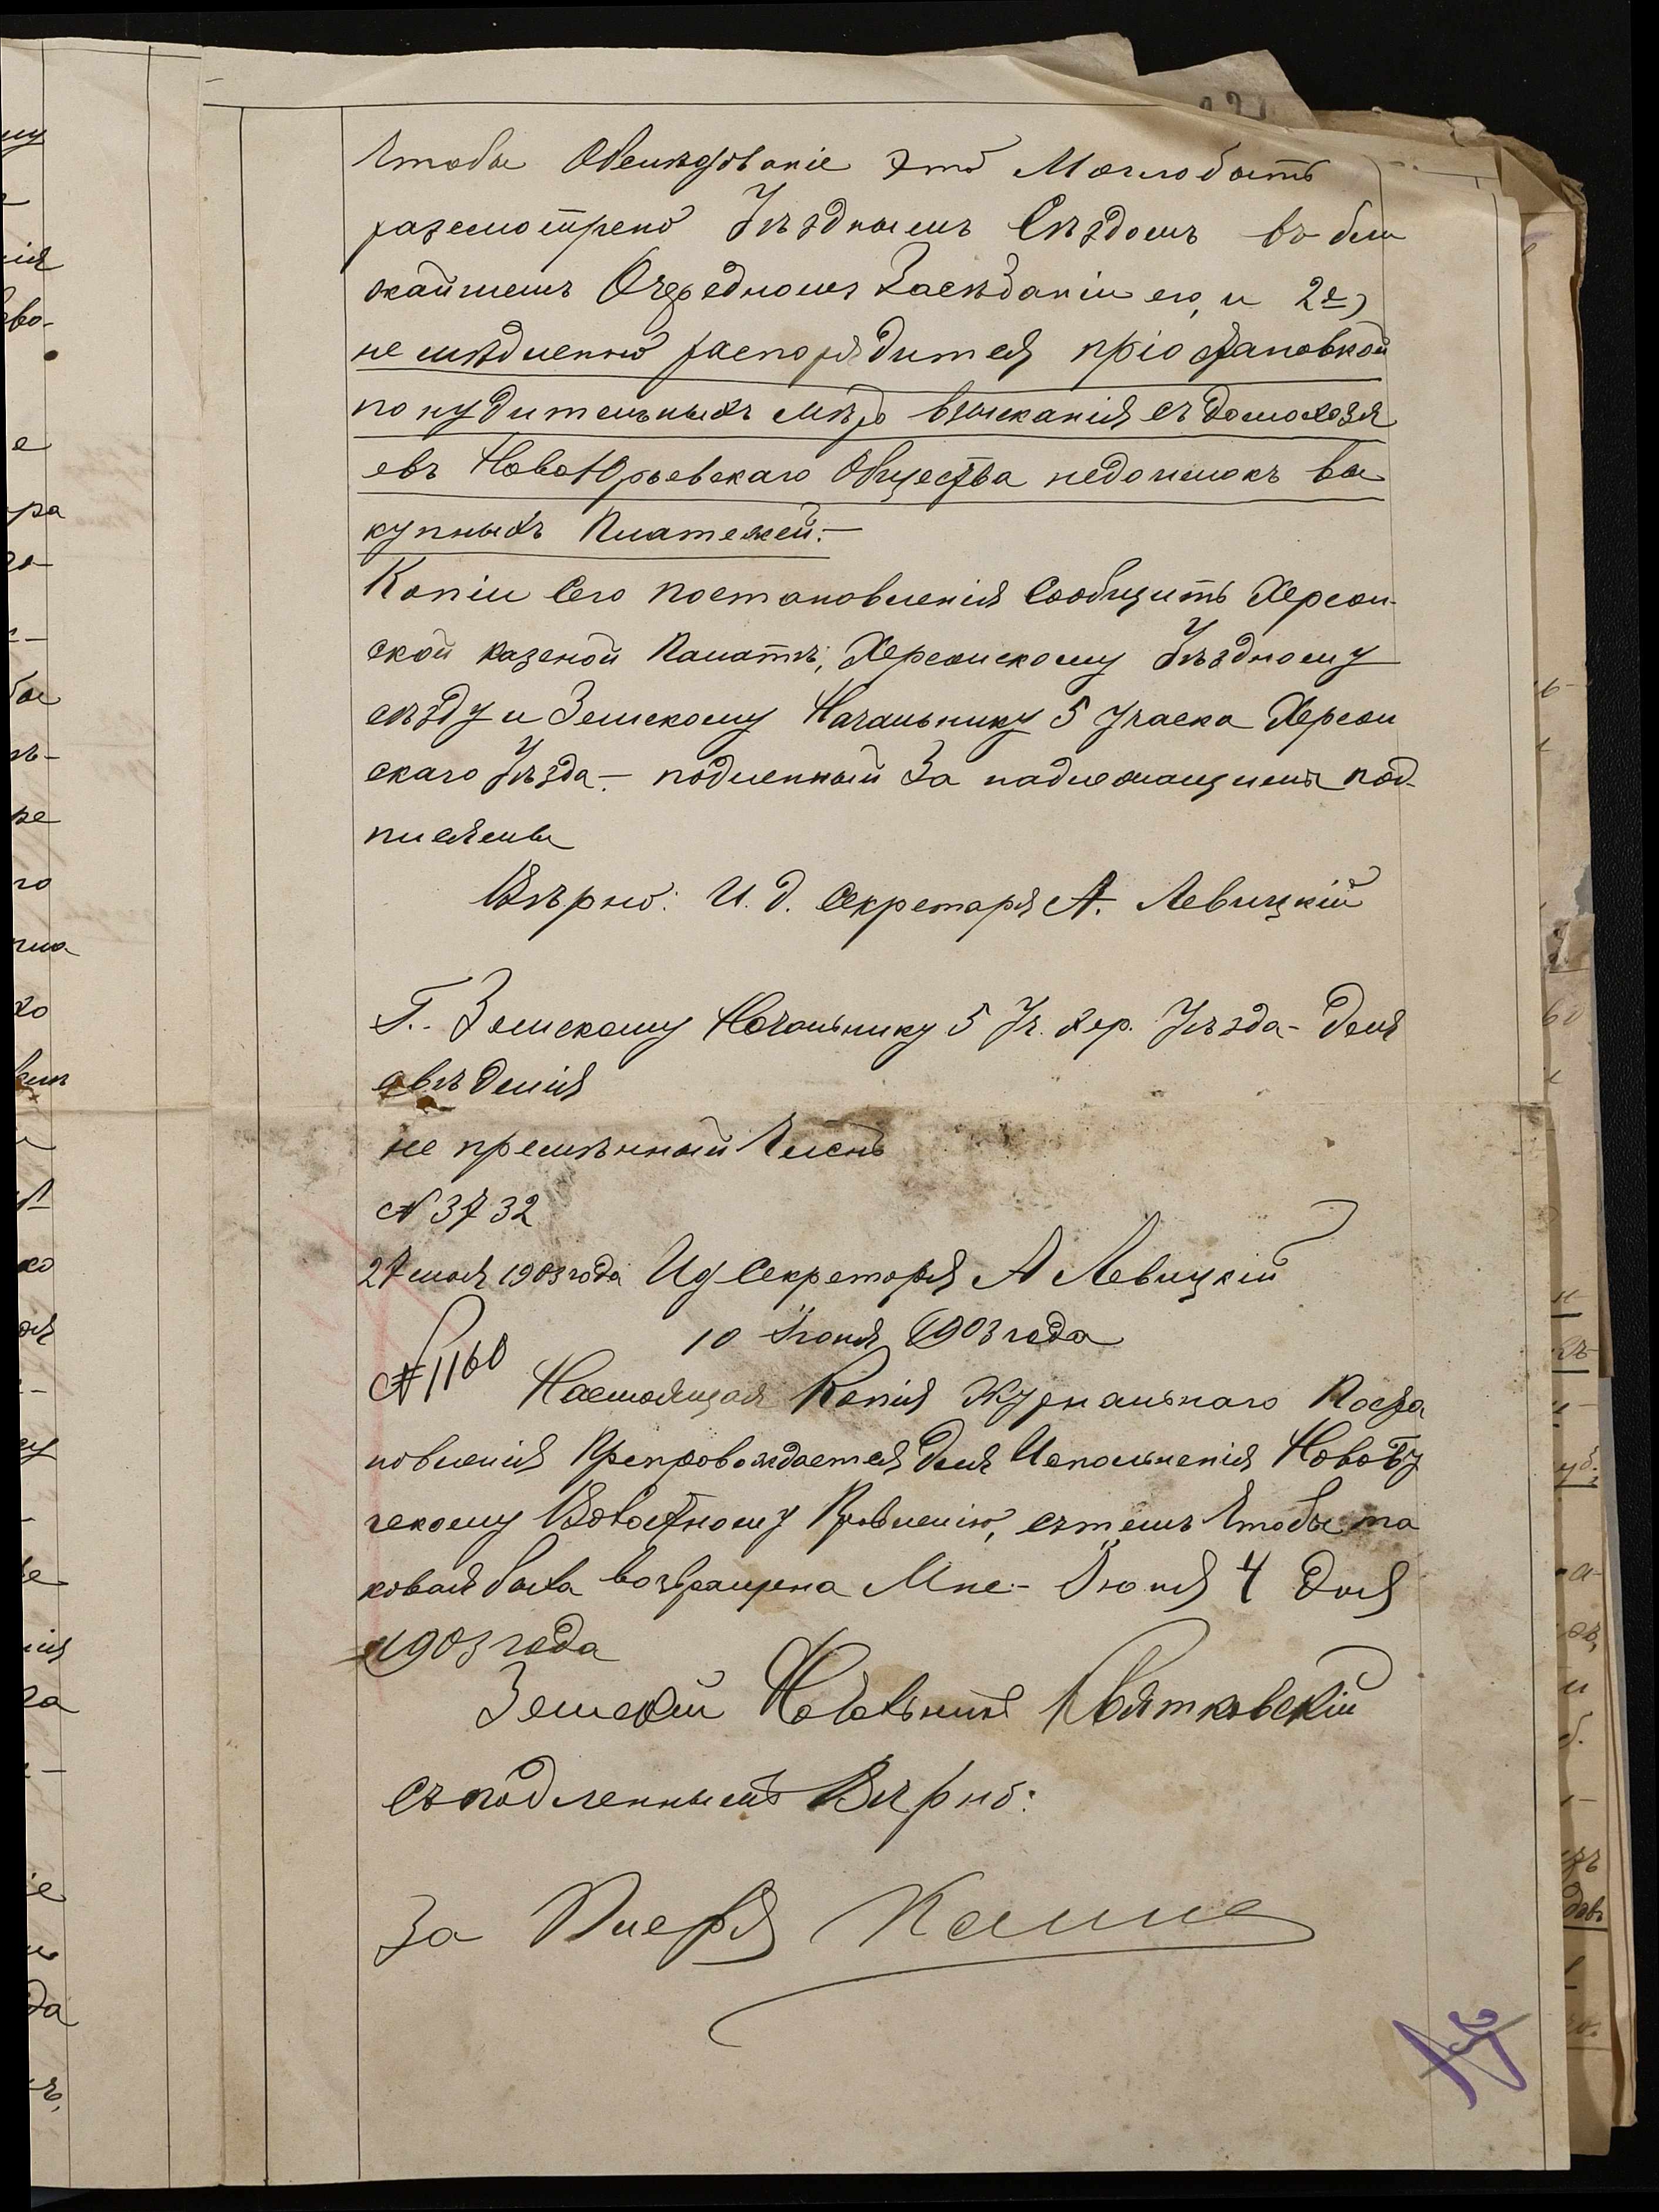 чтобы Обслѣдованіе это Могло быть
разсмотрено Уѣзднымъ Съѣздомъ въ бли
жайшемъ Очередномъ Засѣданіи его, и 2е)
не мѣдленно распорядится пріостановкой
понудительныхъ мѣръ взысканія съ домохозя
евъ НовоЮрьевскаго Общества недоимокъ вы
купныхъ Платежей.—
Копіи Сего постановленія Сообщить Херсон-
ской казеной Палатѣ, Херсонскому Уѣздному
съѣзду и Земскому Начальнику 5 участка Херсон
скаго Уѣзда.— подленный За надлежащими под-
писями
Вѣрно: И. д. Секретаря А. Левицкій
Г. Земскому Начальнику 5 Уч. Хер. Уѣзда - для
свѣденія
не премѣнный Членъ
№ 3732
27 мая 1903 года Ид Секретаря А Левицкій
10 Іюня 1903 года
№ 1160 Настоящая Копія Журнальнаго Поста
новленія Препровождается для Исполненія Новобу
гскому Волостному Правленію, съ темъ чтобы та
ковая была возвращена Мне - Іюня 4 дня
1903 года
Земскій Начальникъ Квятковскій
съ подленнымъ Вѣрно:
За Писаря